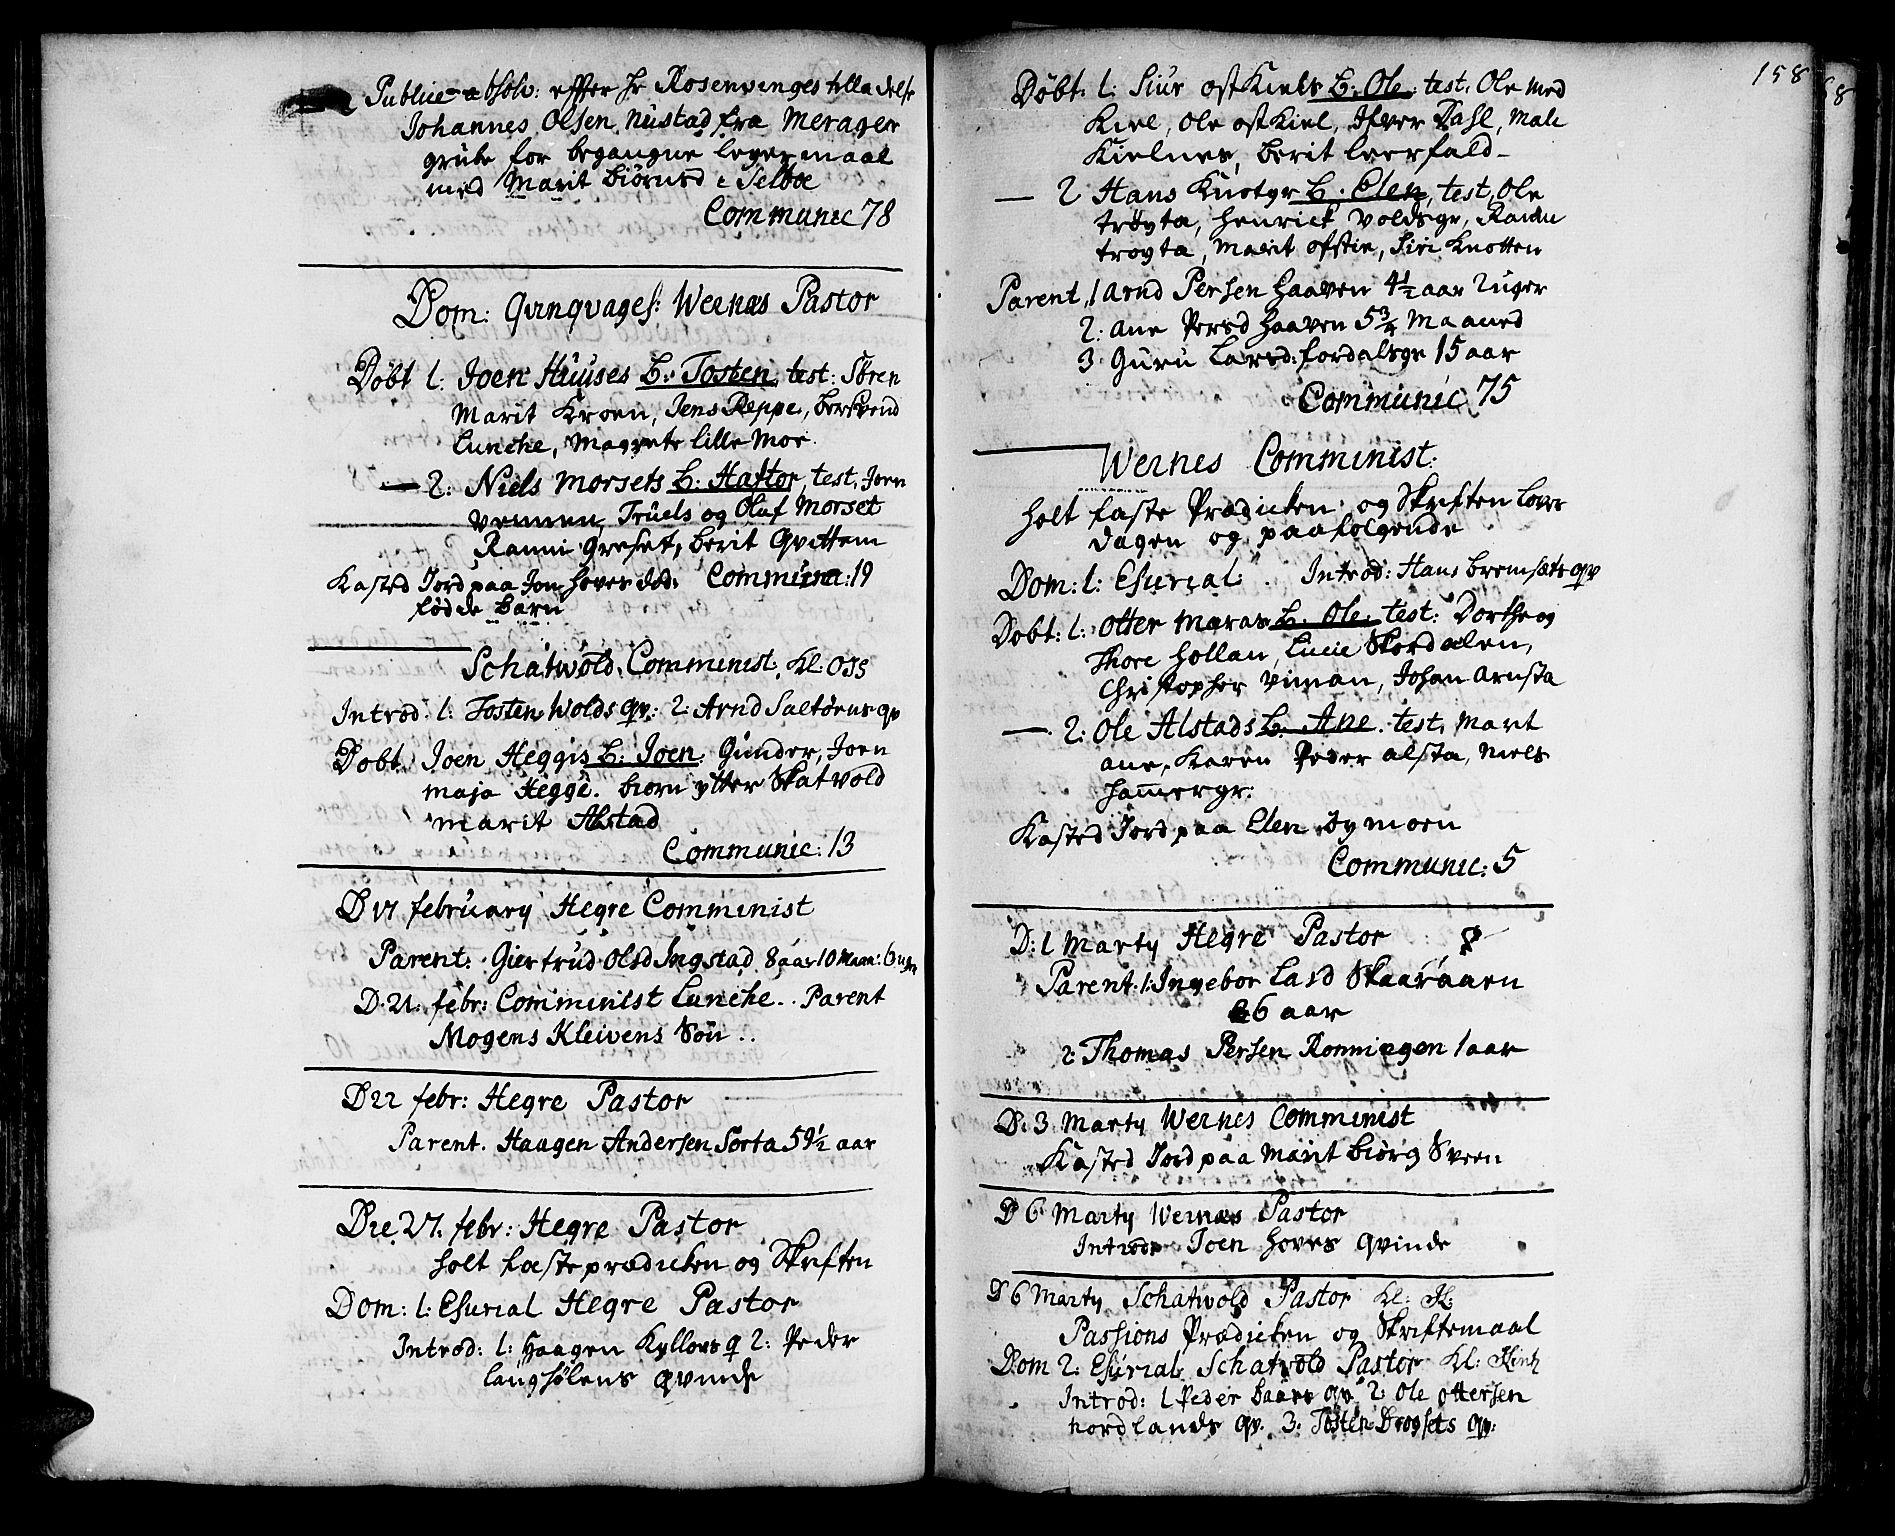 Publice absolv: effter Hr Rosenvinges tilladelse
Johannes Olsen Nustad fra Merager
grube for begangne leyermaal
med Marit Biørnsd i Selboe
Communic 78
Dom: Qvinqvages: Wernæs Pastor
Døbt 1: Joen Huuses B: Tosten test: Sören
Marit Kroen, Jens Reppe, Berswend
Lunche, Magrete lille Moe.
— 2: Niels Morsets B: Haftor, test. Joen
Vennen, Truels og Oluf Morset
Ranni Greset, Berit Qvittem
Kasted Jord paa Jon Hoves død: Communic: 19
fødde barn
Schatwold Comminist. Kl: O35
Introd. 1: Tosten Wolds qv: 2: Arnd Saltörens qv
Døbt. Joen Heggis B: Joen Gunder, Joen
maja Hegge. Biørn ytter Skatvold
Marit Alstad
Communic: 13
D 17 february Hegre Comminist
Parent: Giertrud Olsd Ingstad 8 aar 10 Maan: 6 uger
D. 21. febr: Comminist Lunche. Parent
Mogens Kleivens Søn ..
D 22 febr: Hegre Pastor
Parent. Haagen Andersen Sorta 59½ aar
Die 27. febr: Hegre Pastor
holt fasteprædicken og Skriften
Dom: 1: Esurial Hegre Pastor
Introd: 1: Haagen Kylloes q 2: Peder
Langhølens qvinde
158
Døbt: 1: Siur ost Kiels B: Ole: test. Ole Med
Kiel, Ole ost Kiel, Ifver Dahl, Male
Kielnes, Berit Leerfald –
— 2 Hans Knotgr B: Elen, test. Ole
trøyta, Henrick Voldsgr, Randu
trøyta, Marit ofstie, Siri Knotten
Parent, 1 Arnd Persen Haaven 4½ aar 2 uger
2: Ane Persd Haaven 5¾ Maaned
3 Guru Larsd: fordalsgr 15 aar
Communic 75
Wernes Comminist:
holt faste Prædicken og Skriften Løver
dagen og paafølgende
Dom: 1: Esurial: Introd: Hans Bremsæts qv
Døbt: 1: Otter Maras B: Ole: test: Dorthe og
Thore Hollan, Lucie Skordalen,
Christopher Viman, Johan Arnsta
— 2: Ole Alstads B: Ane. test. Marit
ane, Karen Peder alsta, Niels
Hamergr:
Kasted Jord paa Elen øymoen
Communic: 5
D: 1 Marty Hegre Pastor
Parent. 1: Ingebor Lasd Skaaraaen
26 aar
2: Thomas Persen Ronningen 1 aar
D. 3 Marty Wernes Comminist
Kasted Jord paa Marit Biørg Sveen
D 6 Marty Wernæs Pastor
Introd: Joen Hoves qvinde
D 6 Marty Schatwold Pastor Kl:
Passions Prædicken og Skriftemaal
Dom 2: Esurial Schatvold Pastor Kl:
Introd: 1 Peder Baars qv 2: Ole ottersen
nordlands qv. 3: Tosten Drogsets qv: